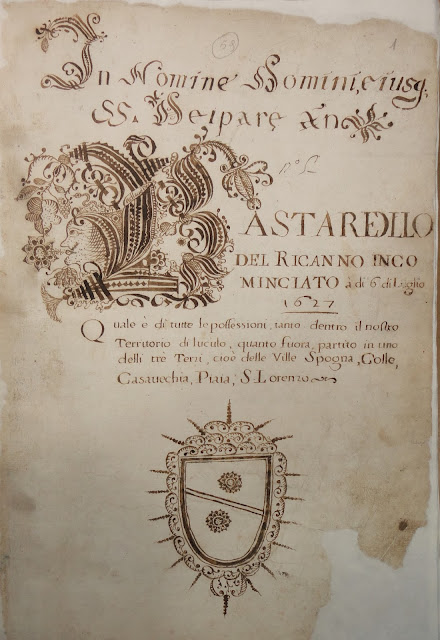 1
In Nomine Domini, eiusq.
SS. Deiparę
BASTAREDLLO
DEL RICANNO INCO
MINCIATO à di 6 di Luglio
1627
Quale è di tutte le possessioni, tanto dentro il nostro
Territorio di luculo, quanto fuora, partito in uno
delli trè Terzi, cioè delle Ville Spogna, Colle,
Casauechia, Piaia, S. Lorenzo